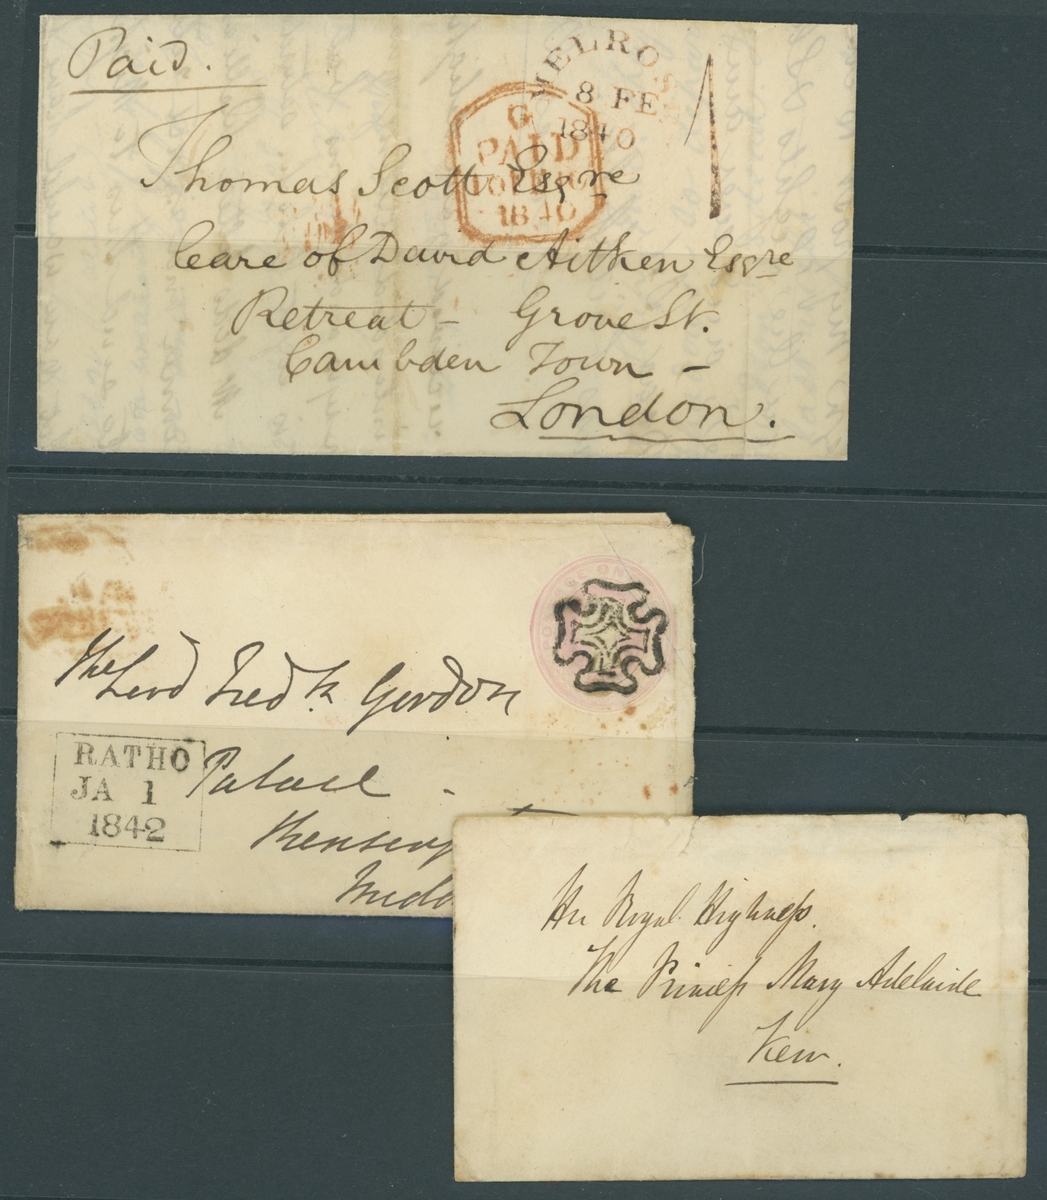 Paid.
MELROSE
8 FE
1840
G
PAID
10 FE 10
1840
1
Thomas Scott Esqre
Care of David Aitken Esqre
Retreat – Grove St.
Cambden Town –
London.
ONE
The Lord Fredk Gordon
RATHO
JA 1
1842
Palace –
Kensing
Midd
Her Royal Highness.
The Princess Mary Adelaide
Kew.